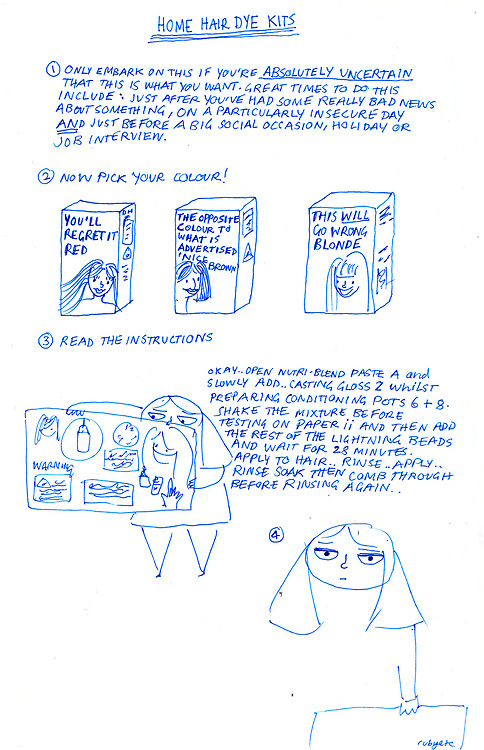 HOME HAIR DYE KITS
① ONLY EMBARK ON THIS IF YOU'RE ABSOLUTELY UNCERTAIN
THAT THIS IS WHAT YOU WANT. GREAT TIMES TO DO THIS
INCLUDE: JUST AFTER YOU'VE HAD SOME REALLY BAD NEWS
ABOUT SOMETHING, ON A PARTICULARLY INSECURE DAY
AND JUST BEFORE A BIG SOCIAL OCCASION, HOLIDAY OR
JOB INTERVIEW.
② NOW PICK YOUR COLOUR!
YOU'LL
REGRET IT
RED
THE OPPOSITE
COLOUR TO
WHAT IS
ADVERTISED
'NISE
BROWN
THIS WILL
GO WRONG
BLONDE
③ READ THE INSTRUCTIONS
OKAY.. OPEN NUTRI-BLEND PASTE A and
SLOWLY ADD.. CASTING GLOSS 2 WHILST
PREPARING CONDITIONING POTS 6 + 8.
SHAKE THE MIXTURE BEFORE
TESTING ON PAPER ii AND THEN ADD
THE REST OF THE LIGHTNING BEADS
AND WAIT FOR 28 MINUTES.
APPLY TO HAIR.. RINSE.. APPLY..
RINSE SOAK THEN COMB THROUGH
BEFORE RINSING AGAIN..
WARNING
④
rubyetc